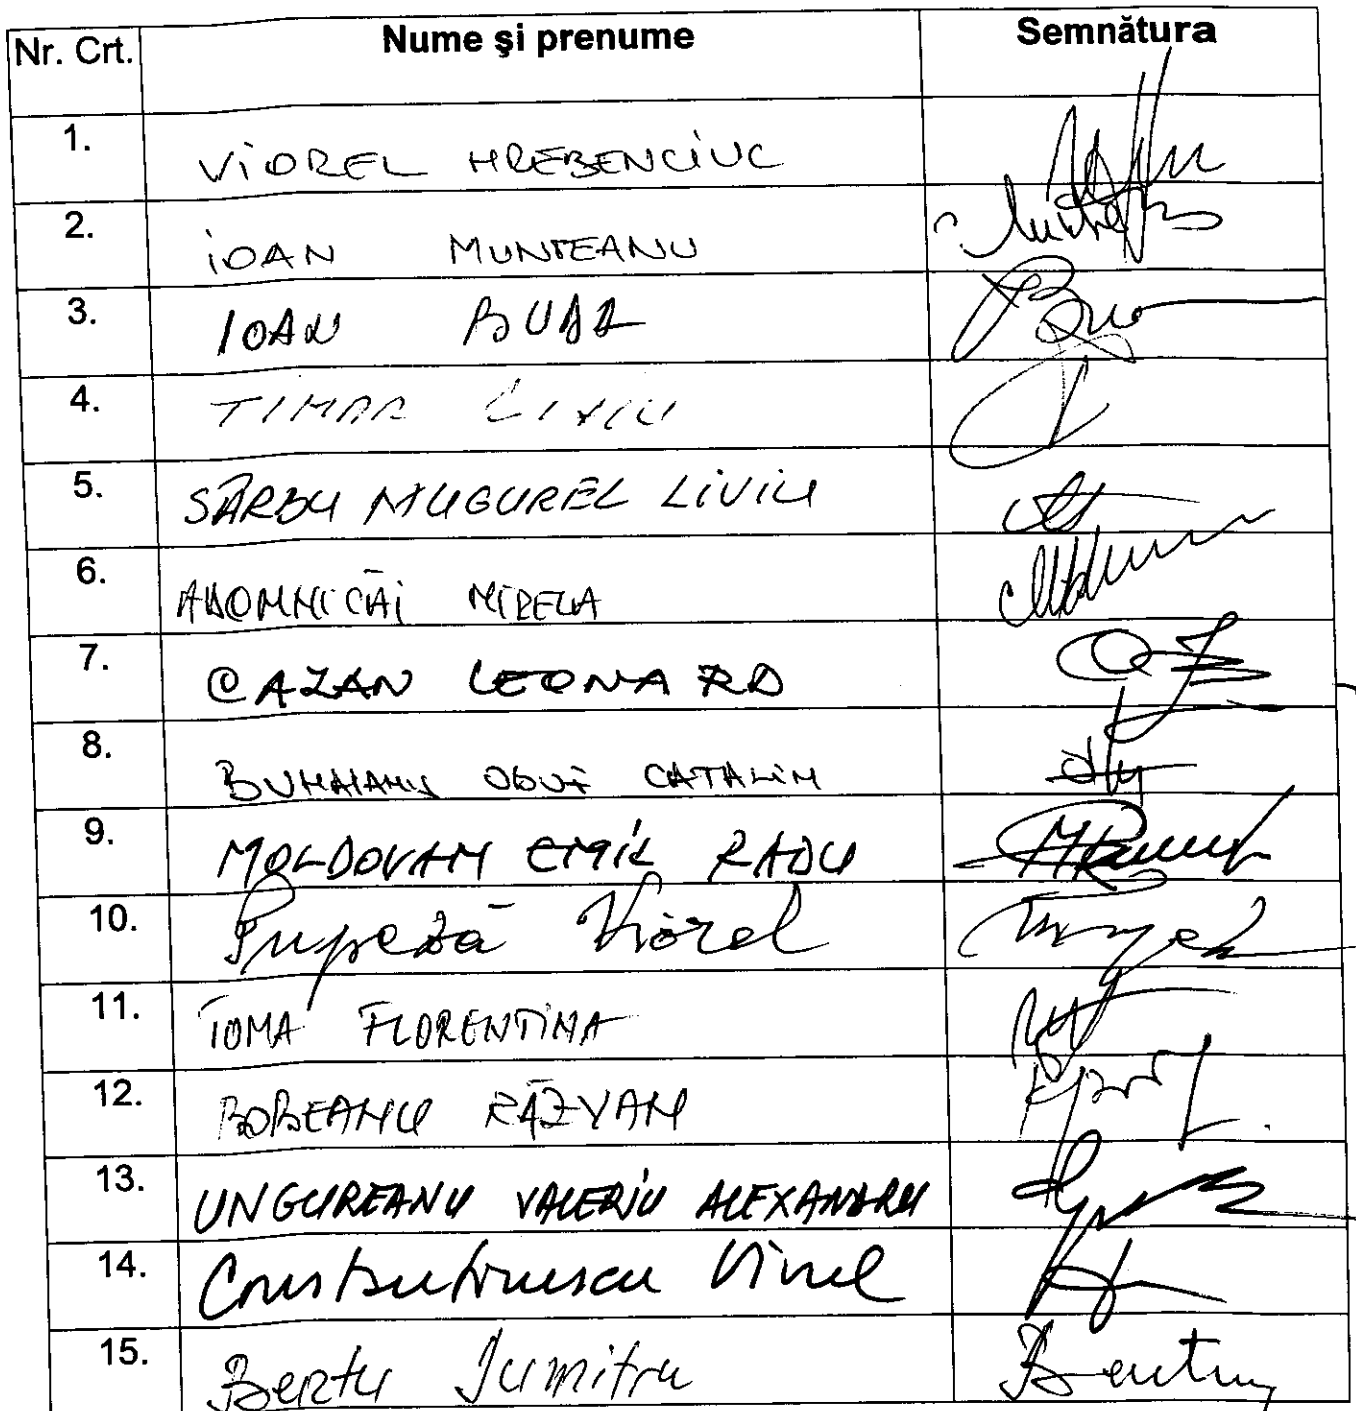 Nr. Crt. Nume și prenume Semnătura
1. VIOREL HREBENCIUC
2. IOAN MUNTEANU
3. IOAN BUDA
4. TIMAR LIVIU
5. SÂRBU MUGUREL LIVIU
6. ADOMNICĂI MIRELA
7. CAZAN LEONARD
8. CATALIN
9. MOLDOVAN EMIL RADU
10. Pupeză Viorel
11. TOMA FLORENTINA
12. BOBEANU RĂZVAN
13. UNGUREANU VALERIU ALEXANDRU
14. Constantinescu Viorel
15. Dumitru